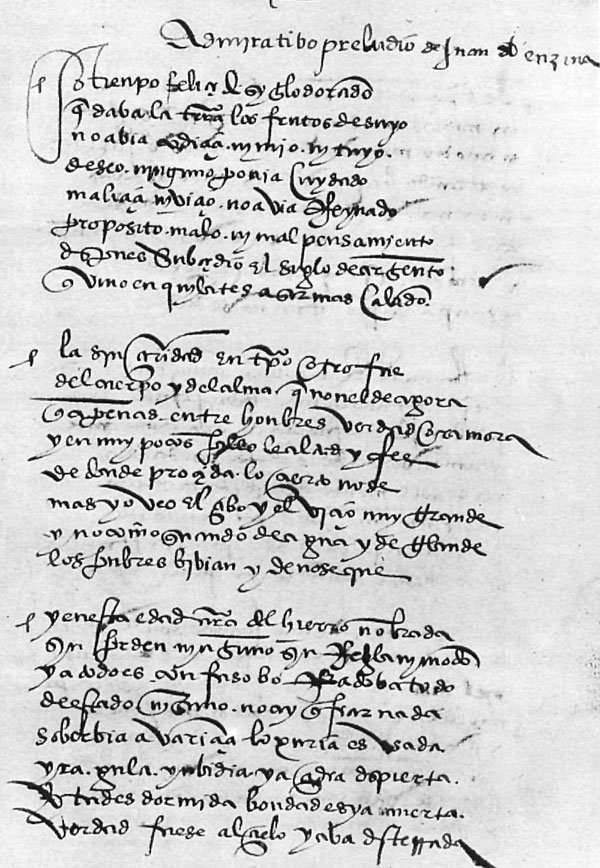 Admiratibo preludio de Juan del enzina
O tienpo feliz del syglo dorado
q̃ dava la trr̃a los frutos de suyo
no abia cudiçia ny mjo ny tuyo.
deseo njnguno ponja cuydado
maliçia ny viçio. no avia Reynado
proposito. malo. ny mal pensamiento
despues subçedio El siglo de argento
q̃ vino en quylates a ser mas calado.
la syn caridad En tpõ otro fue
del cuerpo y del alma. q̃ no nel de agora
q̃ apenas. entre honbres verdad ora mora
y en muy pocos lealtad y fee
de donde proçeda. lo çierto no se
mas yo veo El y el viçio muy grande
y no com̃o quando de agua y de glande
los honbres bibian y de no se que
y en esta edad nr̃a del hierro nonbrada
syn horden njnguno syn Regla ny modo
ya todo es confuso Rebuelto
de estado njnguno. no ay q̃ fiar nada
soberbia avariçia loxuria es vsada
yra. gula. ynbidia. ya açidia despierta.
vertudes dormida bondad es ya muerta.
verdad fuese al çielo y aca desterrada